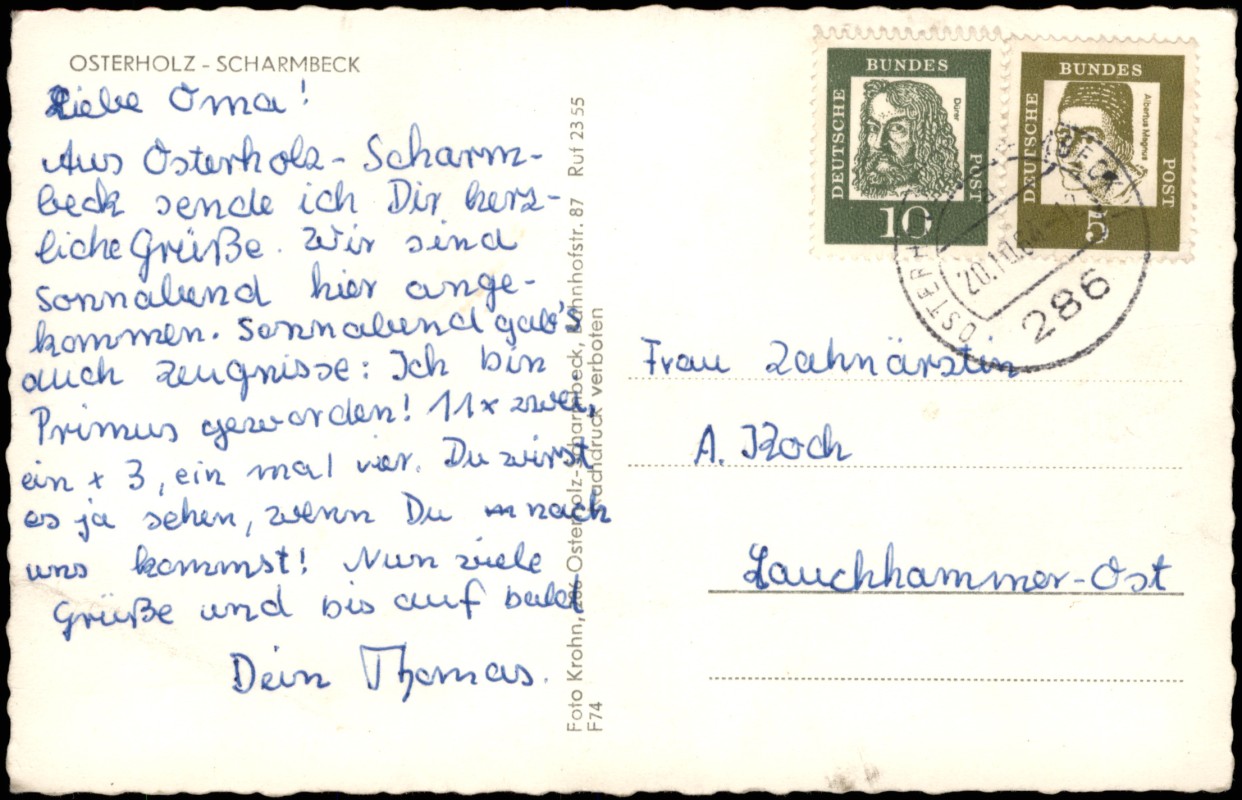 OSTERHOLZ - SCHARMBECK
Liebe Oma!
Aus Osterholz-Scharm-
beck sende ich Dir herz-
liche Grüße. Wir sind
sonnabend hier ange-
kommen. Sonnabend gab's
auch Zeugnisse: Ich bin
Primus geworden! 11x zwei,
ein x 3, ein mal vier. Du wirst
es ja sehen, wenn Du nach
uns kommst! Nun viele
Grüße und bis auf bald
Dein Thomas.
Foto Krohn, 286 Osterholz-Scharmbeck, Bahnhofstr. 87 Ruf 23 55
F74 Nachdruck verboten
DEUTSCHE BUNDES POST
Dürer
10
DEUTSCHE BUNDES POST
Albertus Magnus
5
20.10.64
286
Frau Zahnärztin
A. Koch
Lauchhammer-Ost